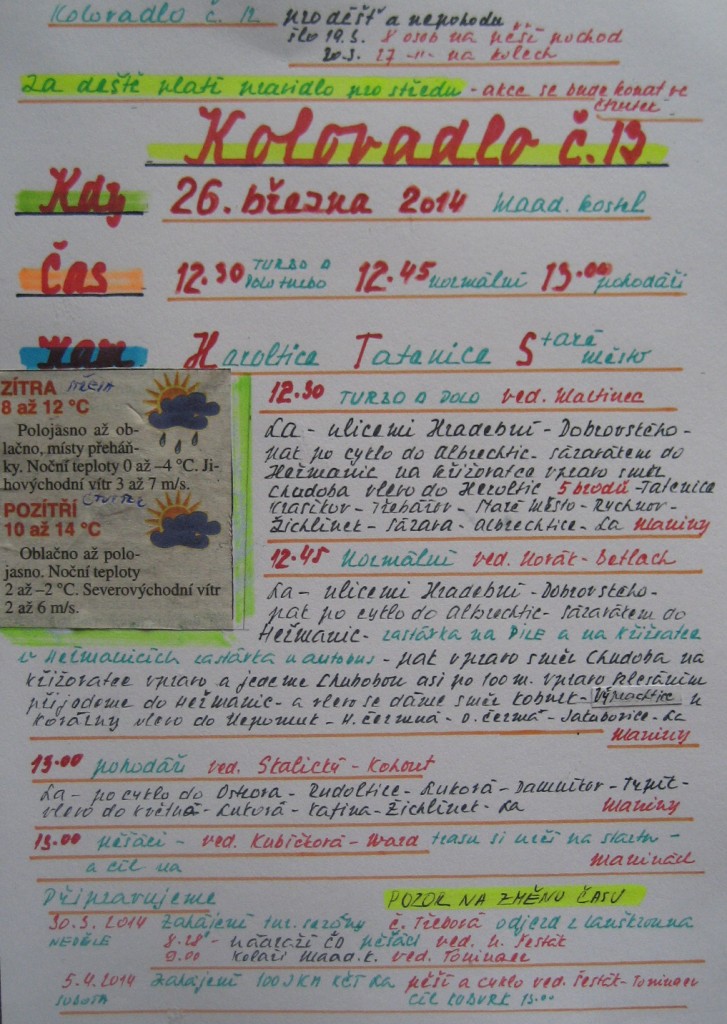 Koloradlo č. 12 pro déšť a nepohodu
šlo 19.3. 8 osob na pěší pochod
20.3. 27 -"- na kolech
Za deště platí pravidlo pro středu - akce se bude konat ve
čtvrtek
Koloradlo č. 13
Kdy 26. března 2014 Maad. kostel
Čas 12.30 TURBO A POLOTURBO 12.45 normální 13.00 pohodáři
Kam Heroltice Tatenice Staré město
ZÍTRA STŘEDA
8 až 12 °C
Polojasno až ob-
lačno, místy přeháň-
ky. Noční teploty 0 až –4 °C. Ji-
hovýchodní vítr 3 až 7 m/s.
POZÍTŘÍ ČTVRTEK
10 až 14 °C
Oblačno až polo-
jasno. Noční teploty
2 až –2 °C. Severovýchodní vítr
2 až 6 m/s.
12.30 TURBO A POLO ved. Maltinec
La - ulicemi Hradební - Dobrovského-
pak po cyklo do Albrechtic - sázavátem do
Heřmanic na křižovatce vpravo směr
Chudoba vlevo do Heroltic 5 brodů - Tatenice
Krasíkov - Třebářov - Staré Město - Rychnov-
Žichlínek - Sázava - Albrechtice - La Maniny
12.45 Normální ved. Horák - Betlach
La - ulicemi Hradební - Dobrovského-
pak po cyklo do Albrechtic - sázavátem do
Heřmanic - zastávka na PILE a na křižovatce
v Heřmanicích zastávka u autobus - pak vpravo směr Chudoba na
křižovatce vpravo a jedeme Chubobou asi po 100 m. vpravo klesáním
přijedeme do Heřmanic - a vlevo se dáme směr Kobult - Výprachtice u
Korálny vlevo do Nepomuk - H. čermná - D. čermá - Jakubovice - La
Maniny
13.00 pohodáři ved. Skalický - Kohout
La - po cyklo do Ostrova - Rudoltice - Luková - Damníkov - Trpík-
vlevo do Květná - Luková - Rafina - Žichlínek - La Maniny
13.00 pěšáci - ved. Kubíčková - Ward trasu si určí na startu -
a cíl na Maninách
Připravujeme POZOR NA ZMĚNU ČASU
30.3.2014 Zahájení tur. sezóny č. Třebová odjezd z Lanškrouna
NEDĚLE 8.28 - nádraží ČD pěšáci ved. H. Šesták
9.00 Kolaři Maad. k. ved. Tomincec
5.4.2014 Zahájení 100 JKM KČT La pěší a cyklo ved. Šesták - Tomincec
SOBOTA CÍL KODVRK 13.00